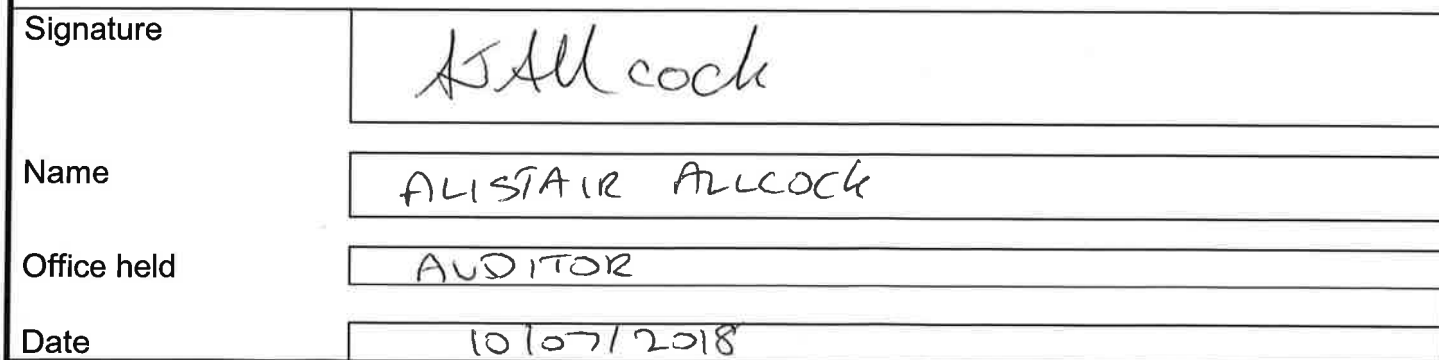 Signature AJAllcock
Name ALISTAIR ALLCOCK
Office held AUDITOR
Date 10/07/2018